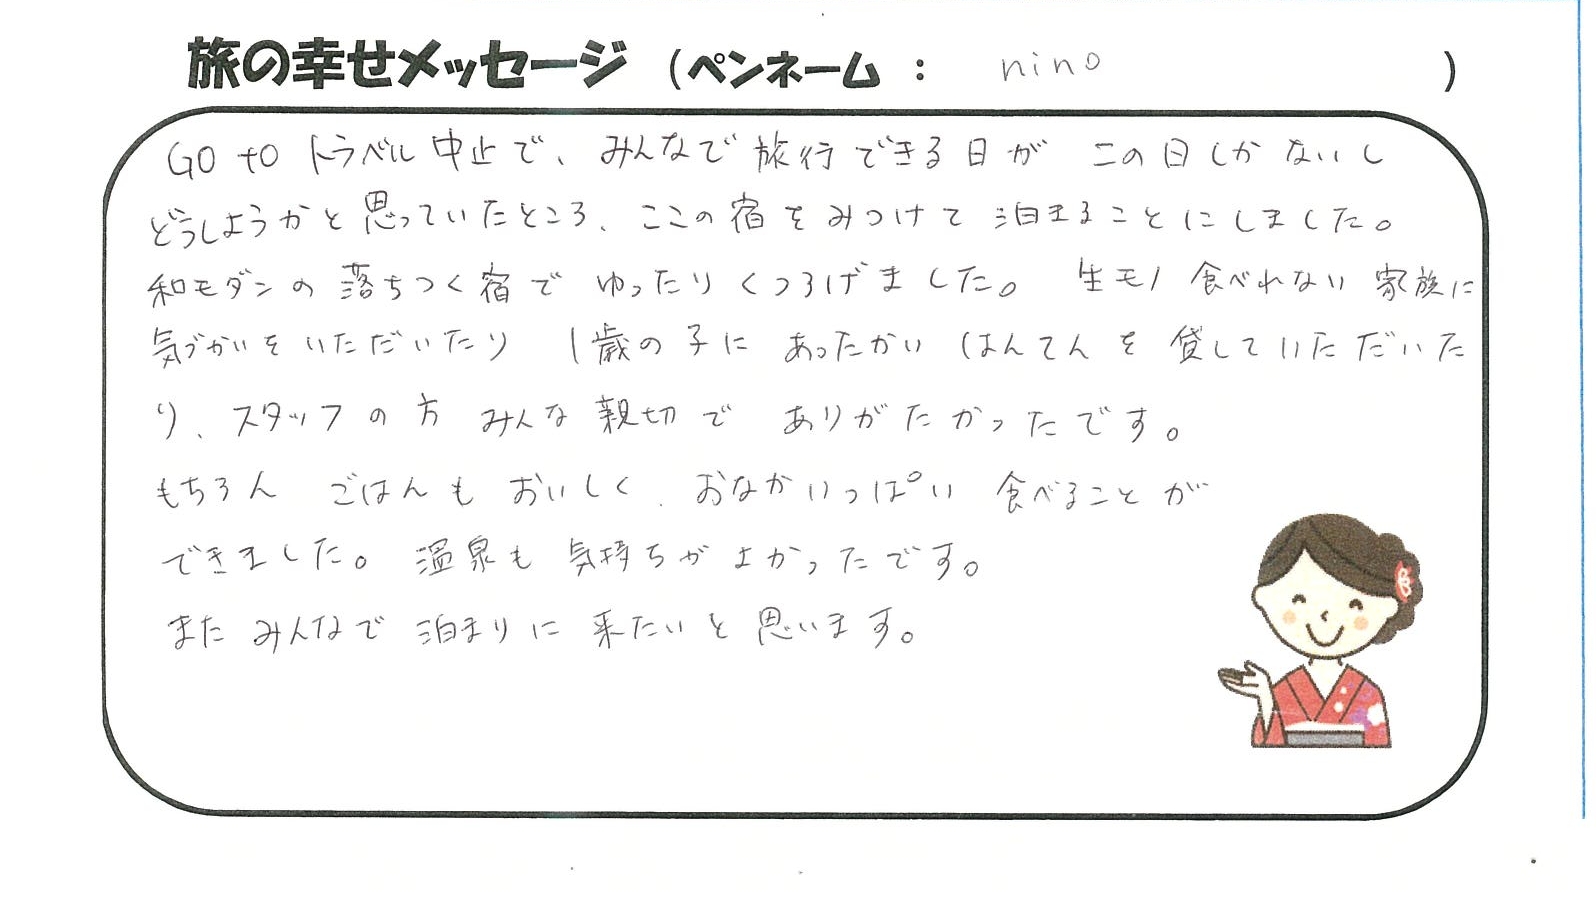 旅の幸せメッセージ (ペンネーム : nino )
GO to トラベル中止で、みんなで旅行できる日が この日しかないし
どうしようかと思っていたところ、ここの宿をみつけて泊まることにしました。
和モダンの落ちつく宿で ゆったりくつろげました。 生モノ食べれない家族に
気づかいをいただいたり 1歳の子に あったかい はんてんを貸していただいた
り、スタッフの方 みんな親切で ありがたかったです。
もちろん ごはんも おいしく、おなかいっぱい 食べることが
できました。 温泉も 気持ちがよかったです。
また みんなで 泊まりに 来たいと思います。